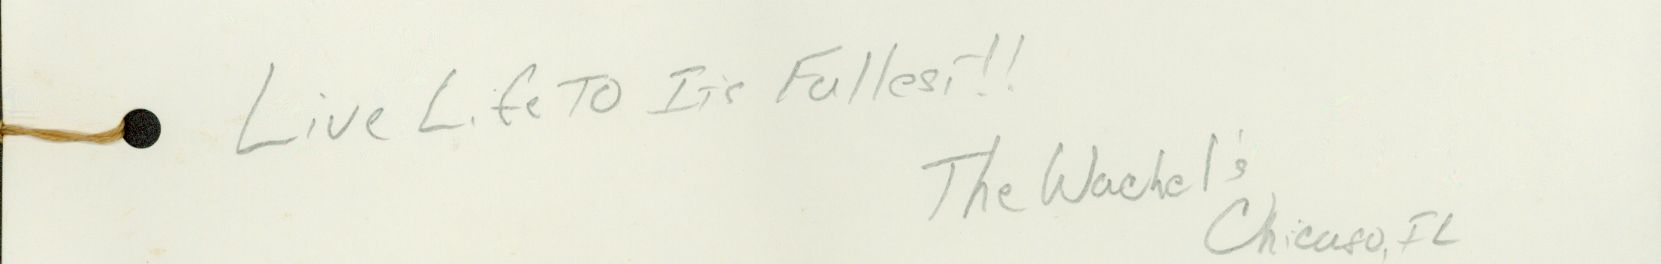 Live Life To Its Fullest!!
The Wachel's
Chicago, IL